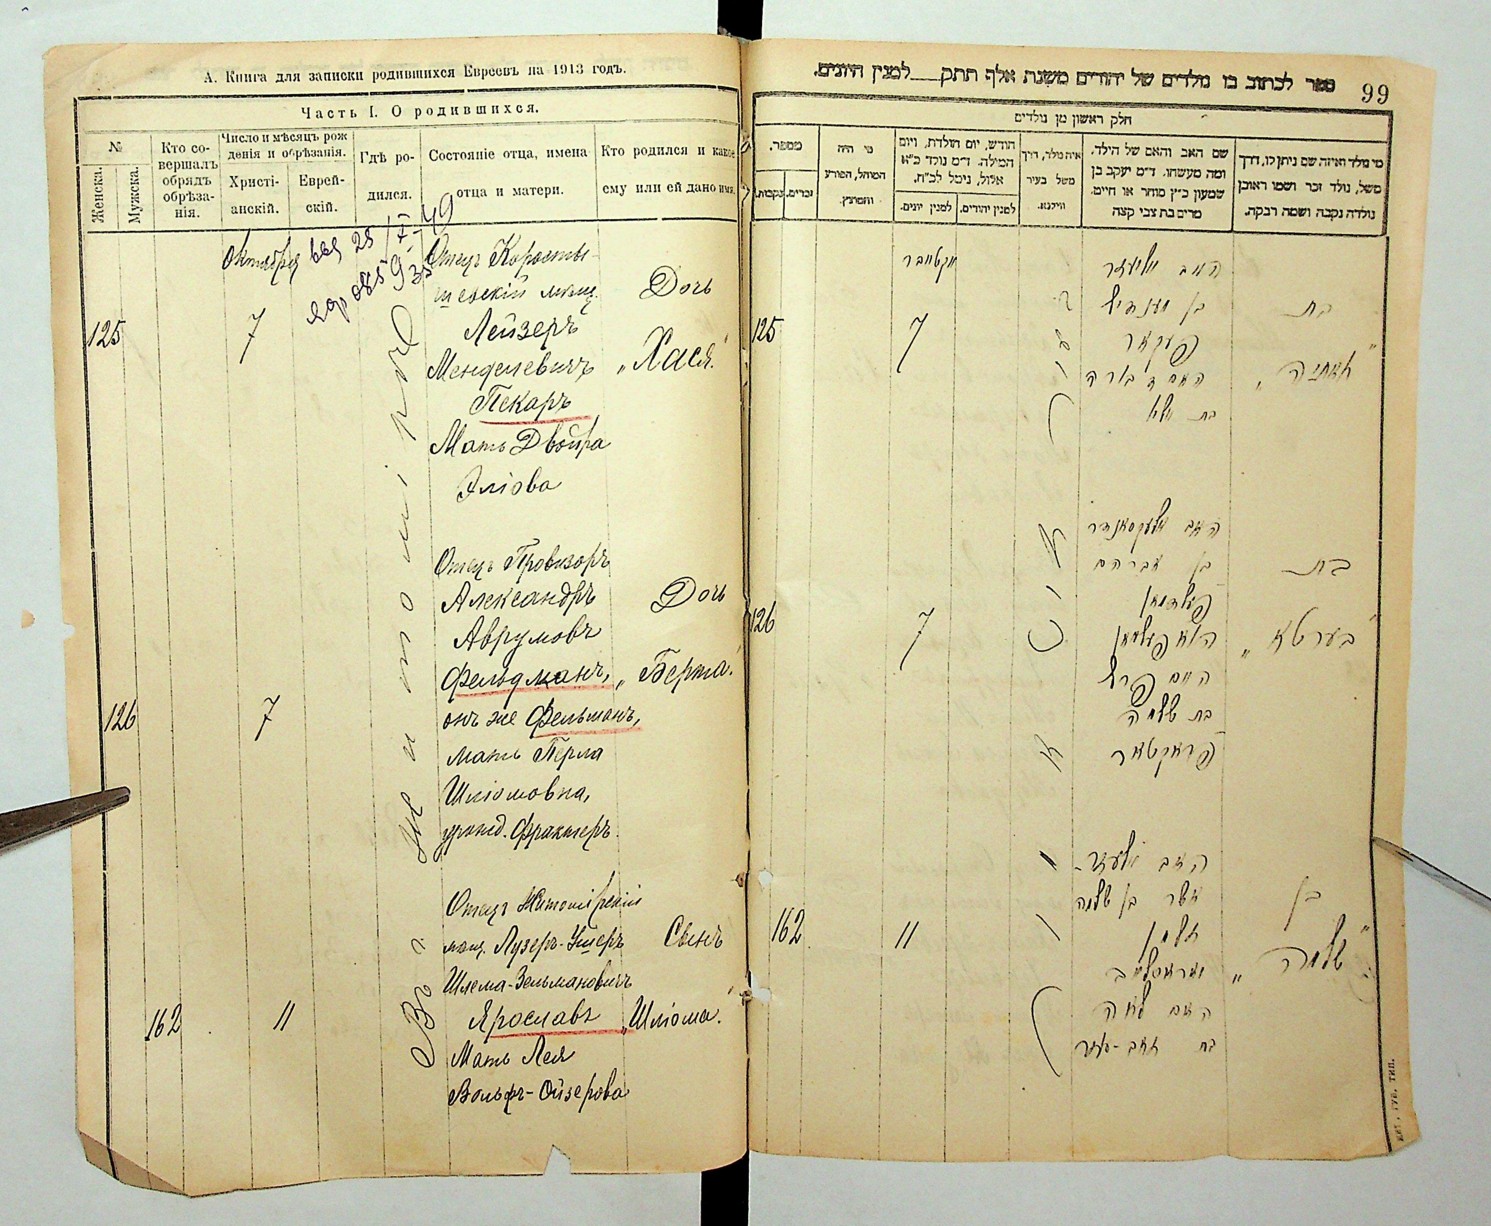 А. Книга для записки родившихся Евреевъ на 1913 годъ.
Часть I. О родившихся.
№
Женска.
Мужска.
Кто со-
вершалъ
обрядъ
обрѣза-
нія.
Число и мѣсяцъ рож
денія и обрѣзанія.
Христі-
анскій.
Еврей-
скій.
Гдѣ ро-
дился.
Состояніе отца, имена
отца и матери.
Кто родился и какое
ему или ей дано имя.
Октября
Въ г. Житомірѣ
125
7
Отецъ Коросты-
шевскій мѣщ.
Лейзеръ
Менделевичъ
Пекаръ
Мать Двойра
Эліова
Дочь
„Хася"
126
7
Отецъ Провизоръ
Александръ
Аврумовъ
Фельдманъ,
онъ же Фельманъ,
мать Перла
Шліомовна,
урожд. Фрактеръ.
Дочь
„Берта"
162
11
Отецъ Житомірскій
мѣщ. Лузеръ-Ушеръ
Шлема-Зельмановичъ
Ярославъ
Мать Лея
Вольфъ-Ойзерова
Сынъ
„Шліома"
99
ספר לכתוב בו נולדים של יהודים משנת אלף תתק__למנין היונים.
חלק ראשון מן נולדים
מספר.
נקבות.
זכרים.
מי היה
המוהל, הפורע
והמוצץ.
חודש, יום הולדת, ויום
המילה. ד״מ נולד כ״א
אלול, נימל לכ״ח.
למנין יונים.
למנין יהודים.
איה נולד, דרך
משל בעיר
ווילנא.
שם האב והאם של הילד.
ומה מעשהו. ד״מ יעקב בן
שמעון כ״ץ סוחר או חיים.
מרים בת צבי קצה
מי נולד ואיזה שם ניתן לו, דרך
משל, נולד זכר ושמו ראובן
נולדה נקבה ושמה רבקה.
אקטיאבר
125
7
האב אליעזר
בן מענדיל
פעקאר
האם דבורה
בת אלי
בת
126
7
האב אלעקסאנדר
בן אברהם
פעלדמאן
הוא פעלמאן
האם פערל
בת שלמה
פראקטער
בת
„בערטא"
162
11
האב אלעזר-
אשר בן שלמה
זלמן
יאראסלאב
האם לאה
בת זאב-
בן
„שלמה"